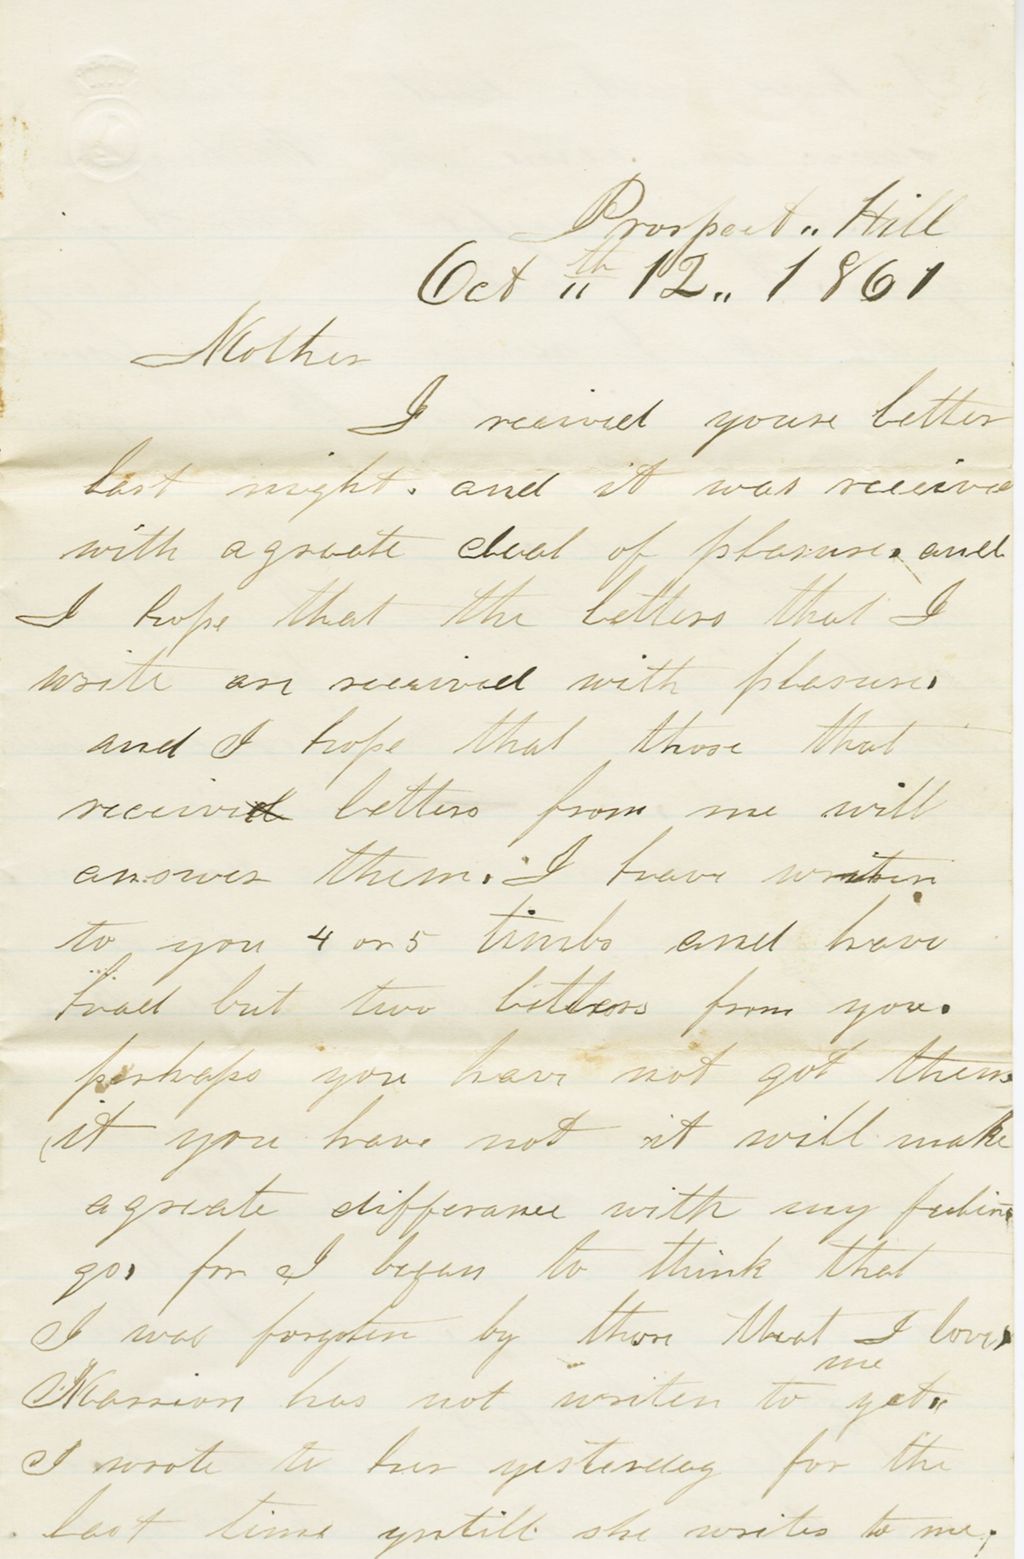 Prospect " Hill
Oct " th 12 " 1861
Mother
I received youre letter
last night. and it was received
with a greate deal of pleasure. and
I hope that the letters that I
write are received with pleasure.
and I hope that those that
received letters from me will
answer them. I have writen
to you 4 or 5 times and have
had but two letters from you.
perhaps you have not got them
if you have not it will make
a greate differance with my feelin
gs. for I began to think that
I was forgoten by those that I love.
Marrion has not writen to me yet.
I wrote to her yesterday for the
last time untill she writes to me.